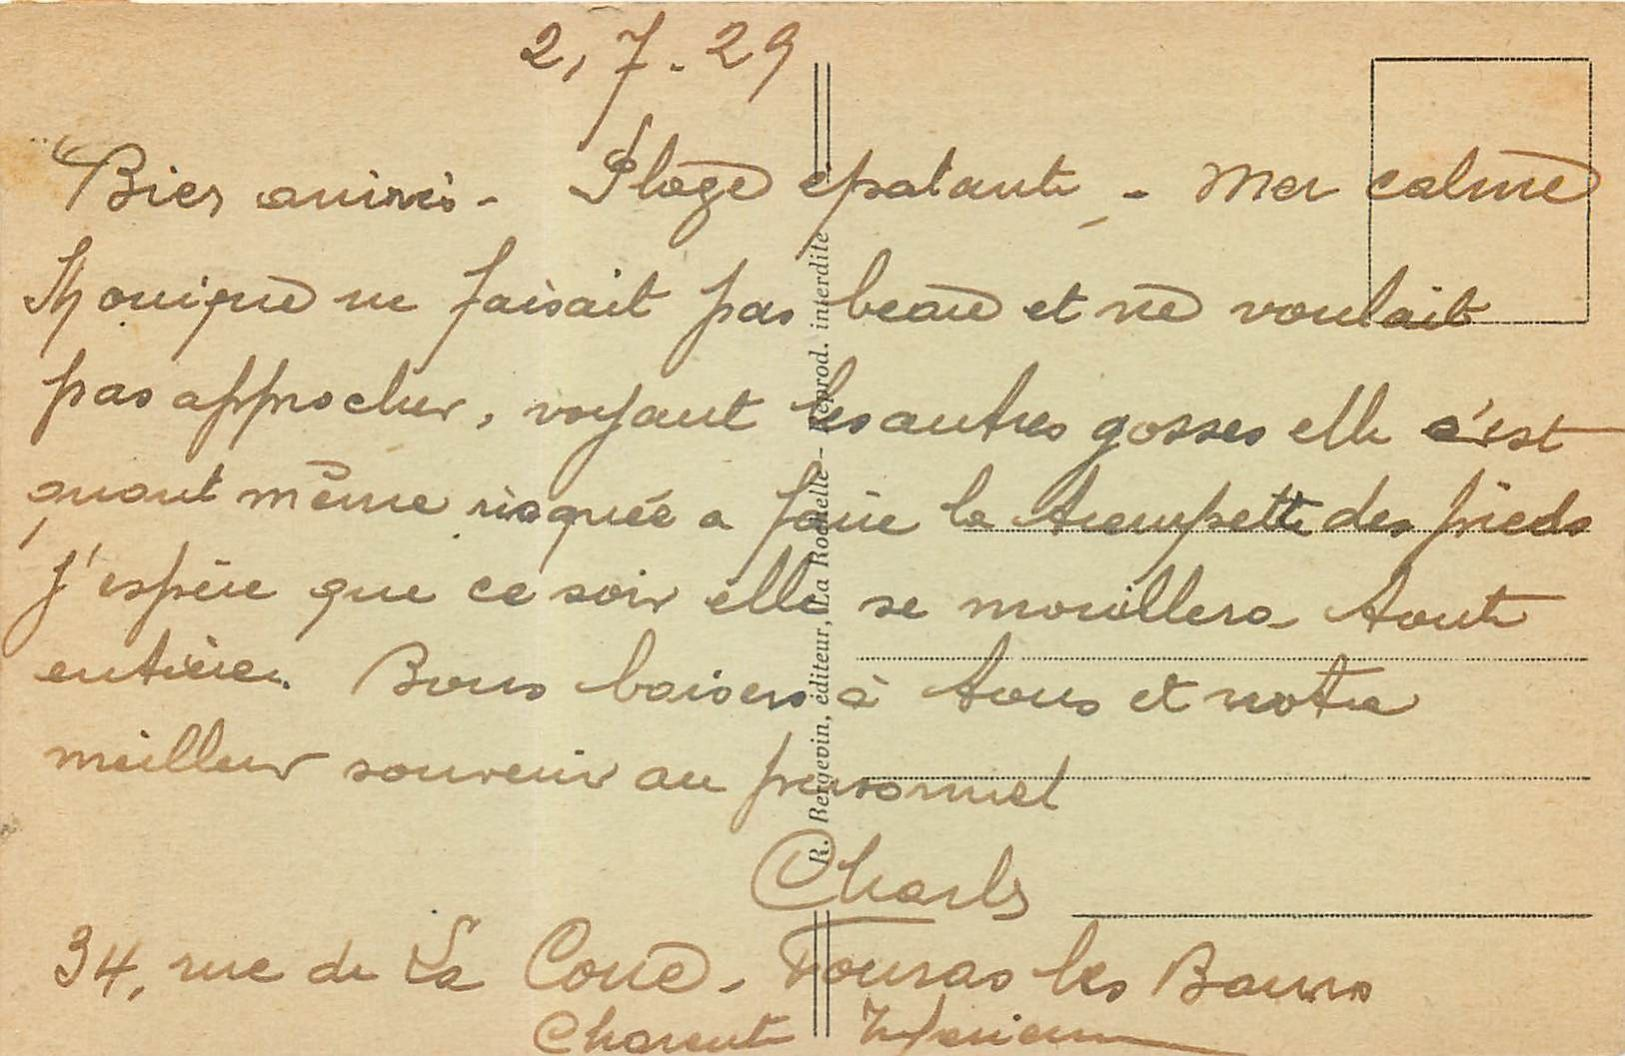 2,7.29
Bien arrivés. Plage épatante. - Mer calme
Monique ne faisait pas beau et ne voulait
pas approcher, voyant les autres gosses elle c'est
quant même risquée a faire la trempette des pieds
J'espère que ce soir elle se mouillera toute
entière. Bons baisers à tous et notre
meilleur souvenir au personnel
Charles
34, rue de La Coue - Fouras les Bains
Charente Inférieure
R. Bergevin, éditeur, La Rochelle - Reprod. interdite